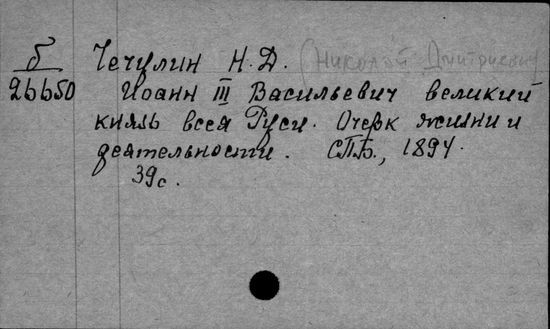 б Чечулин Н. Д. (Николай Дмитриевич
26650 Иоанн III Васильевич великий
князь всея Руси. Очерк жизни и
деятельности. СПБ., 1894.
39с.